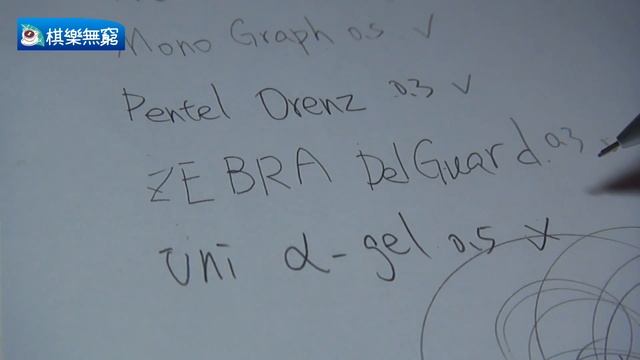 棋樂無窮
Mono Graph 0.5 V
Pentel Orenz 0.3 V
ZEBRA DelGuard 0.3
uni α-gel 0.5 V